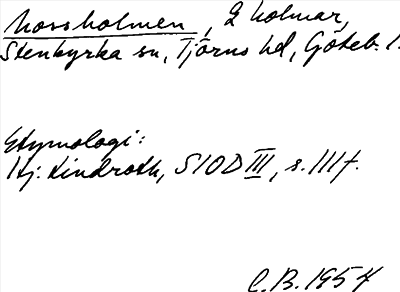 Kossholmen, 2 holmar,
Stenkyrka sn, Tjörns hd, Göteb. l.
Etymologi:
Hj. Lindroth, SIOD III, s. 111 f.
C.B. 1957